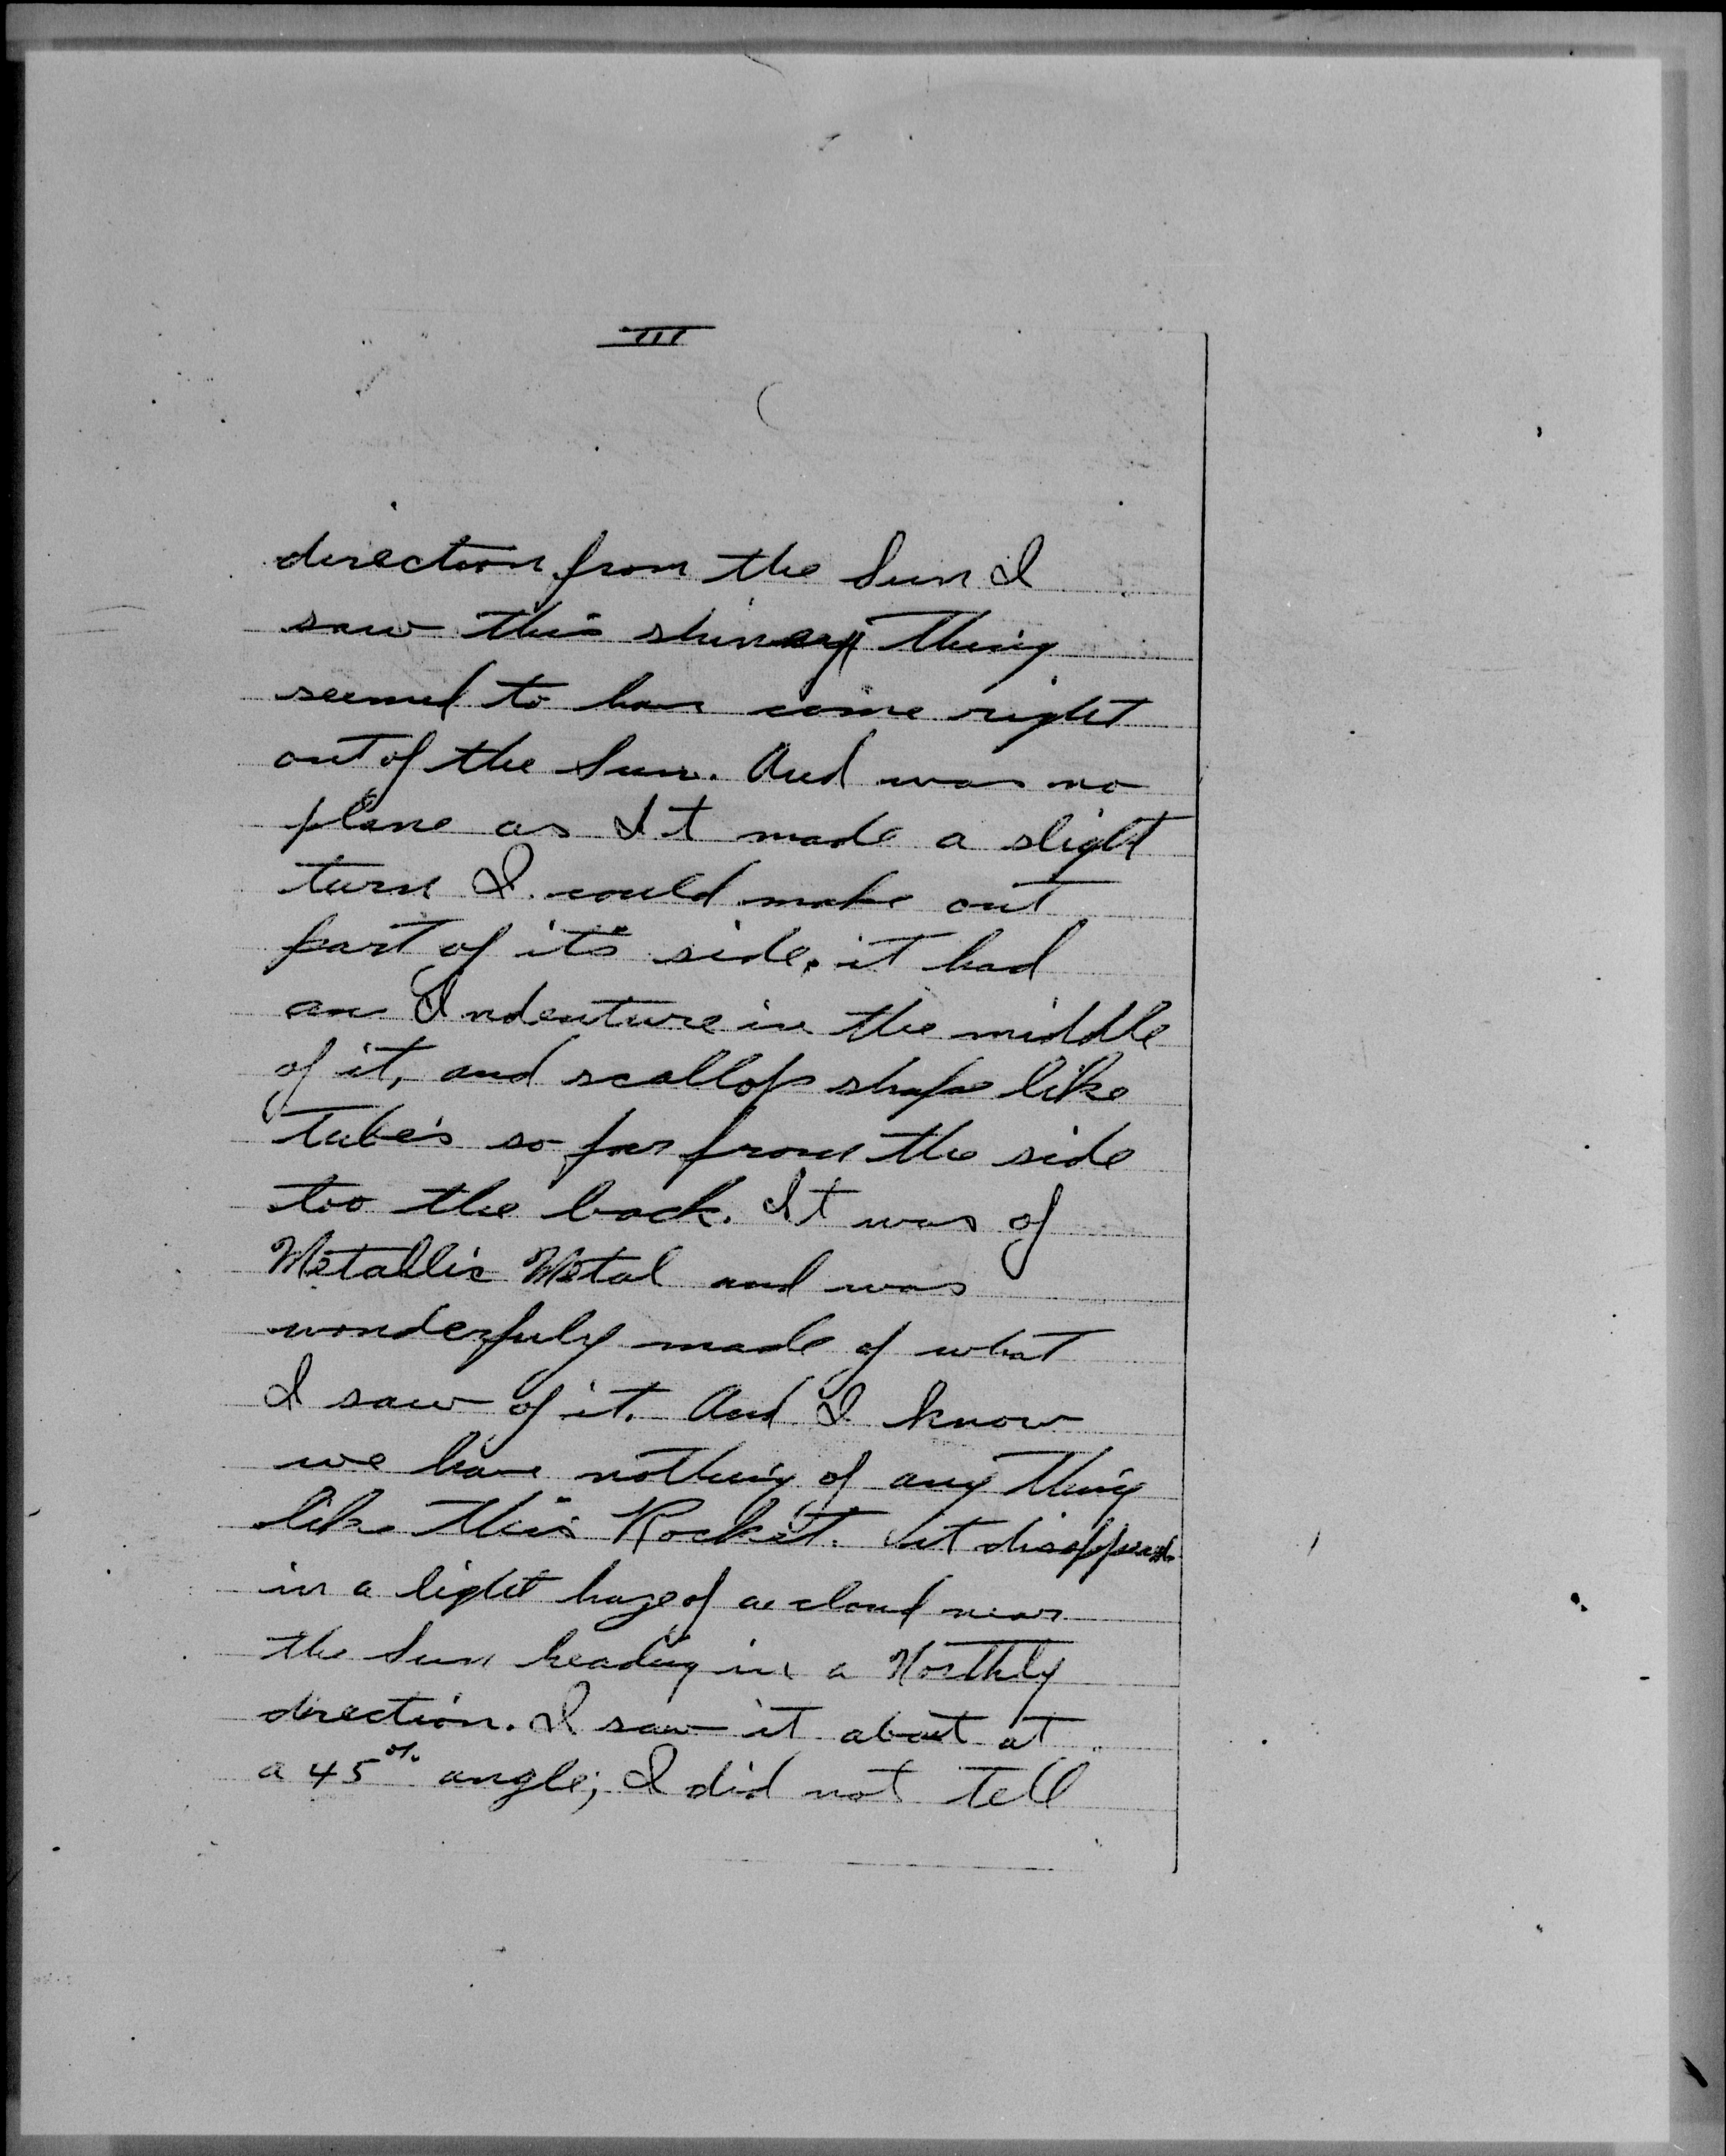 III
direction from the Sun I
saw this shiney thing
seemed to have come right
out of the Sun. And was no
plane as It made a slight
turn I could make out
part of it's side, it had
an Indenture in the middle
of it, and scallop shape like
Tube's so far from the side
too the back. It was of
Metallic Metal and was
wonderfuly made of what
I saw of it. And I know
we have nothing of any thing
like this Rocket. It
in a light haze of a cloud near
the Sun heading in a Northly
direction. I saw it about at
a 45 angle; I did not tell